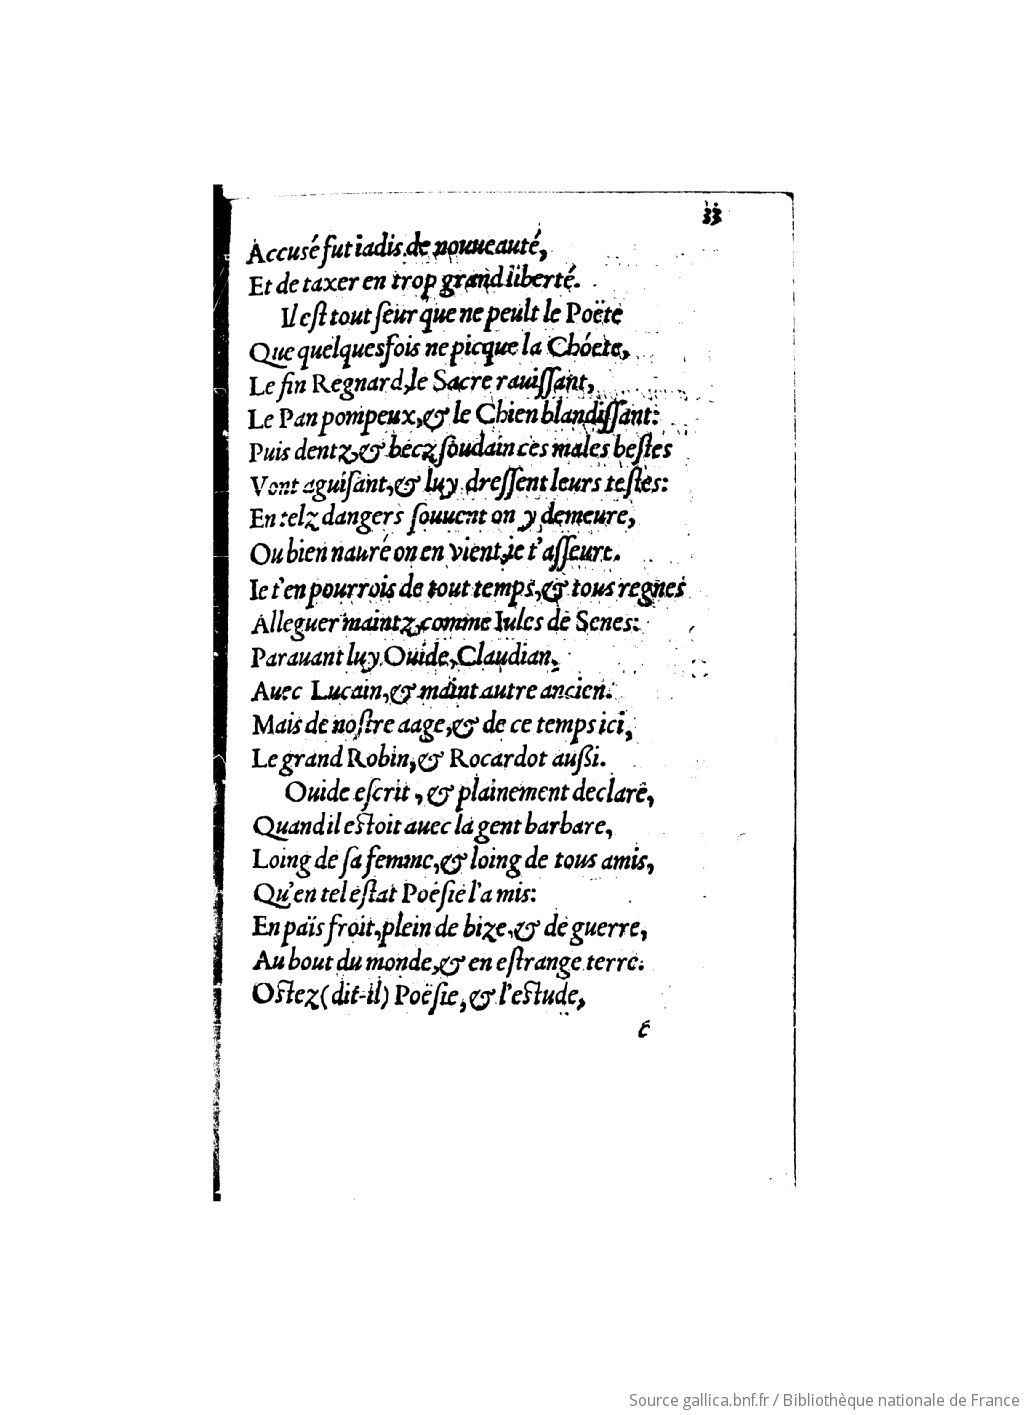 33
Accusé fut iadis de nouueauté,
Et de taxer en trop grand liberté.
Il eſt tout ſeur que ne peult le Poëte
Que quelquesfois ne picque la Chóete,
Le fin Regnard, le Sacre rauiſſant,
Le Pan pompeux, & le Chien blandiſſant:
Puis dentz, & becz ſoudain ces males beſtes
Vont aguiſant, & luy dreſſent leurs teſtes:
En telz dangers ſouuent on y demeure,
Ou bien nauré on en vient, ie t'aſſeure.
Ie t'en pourrois de tout temps, & tous regnes
Alleguer maintz, comme Iules de Senes:
Parauant luy Ouide, Claudian,
Auec Lucain, & maint autre ancien.
Mais de noſtre aage, & de ce temps ici,
Le grand Robin, & Rocardot auſſi.
Ouide eſcrit, & plainement declare,
Quand il eſtoit auec la gent barbare,
Loing de ſa femme, & loing de tous amis,
Qu'en tel eſtat Poëſie l'a mis:
En païs froit, plein de bize, & de guerre,
Au bout du monde, & en eſtrange terre.
Oſtez (dit-il) Poëſie, & l'eſtude,
é
Source gallica.bnf.fr / Bibliothèque nationale de France